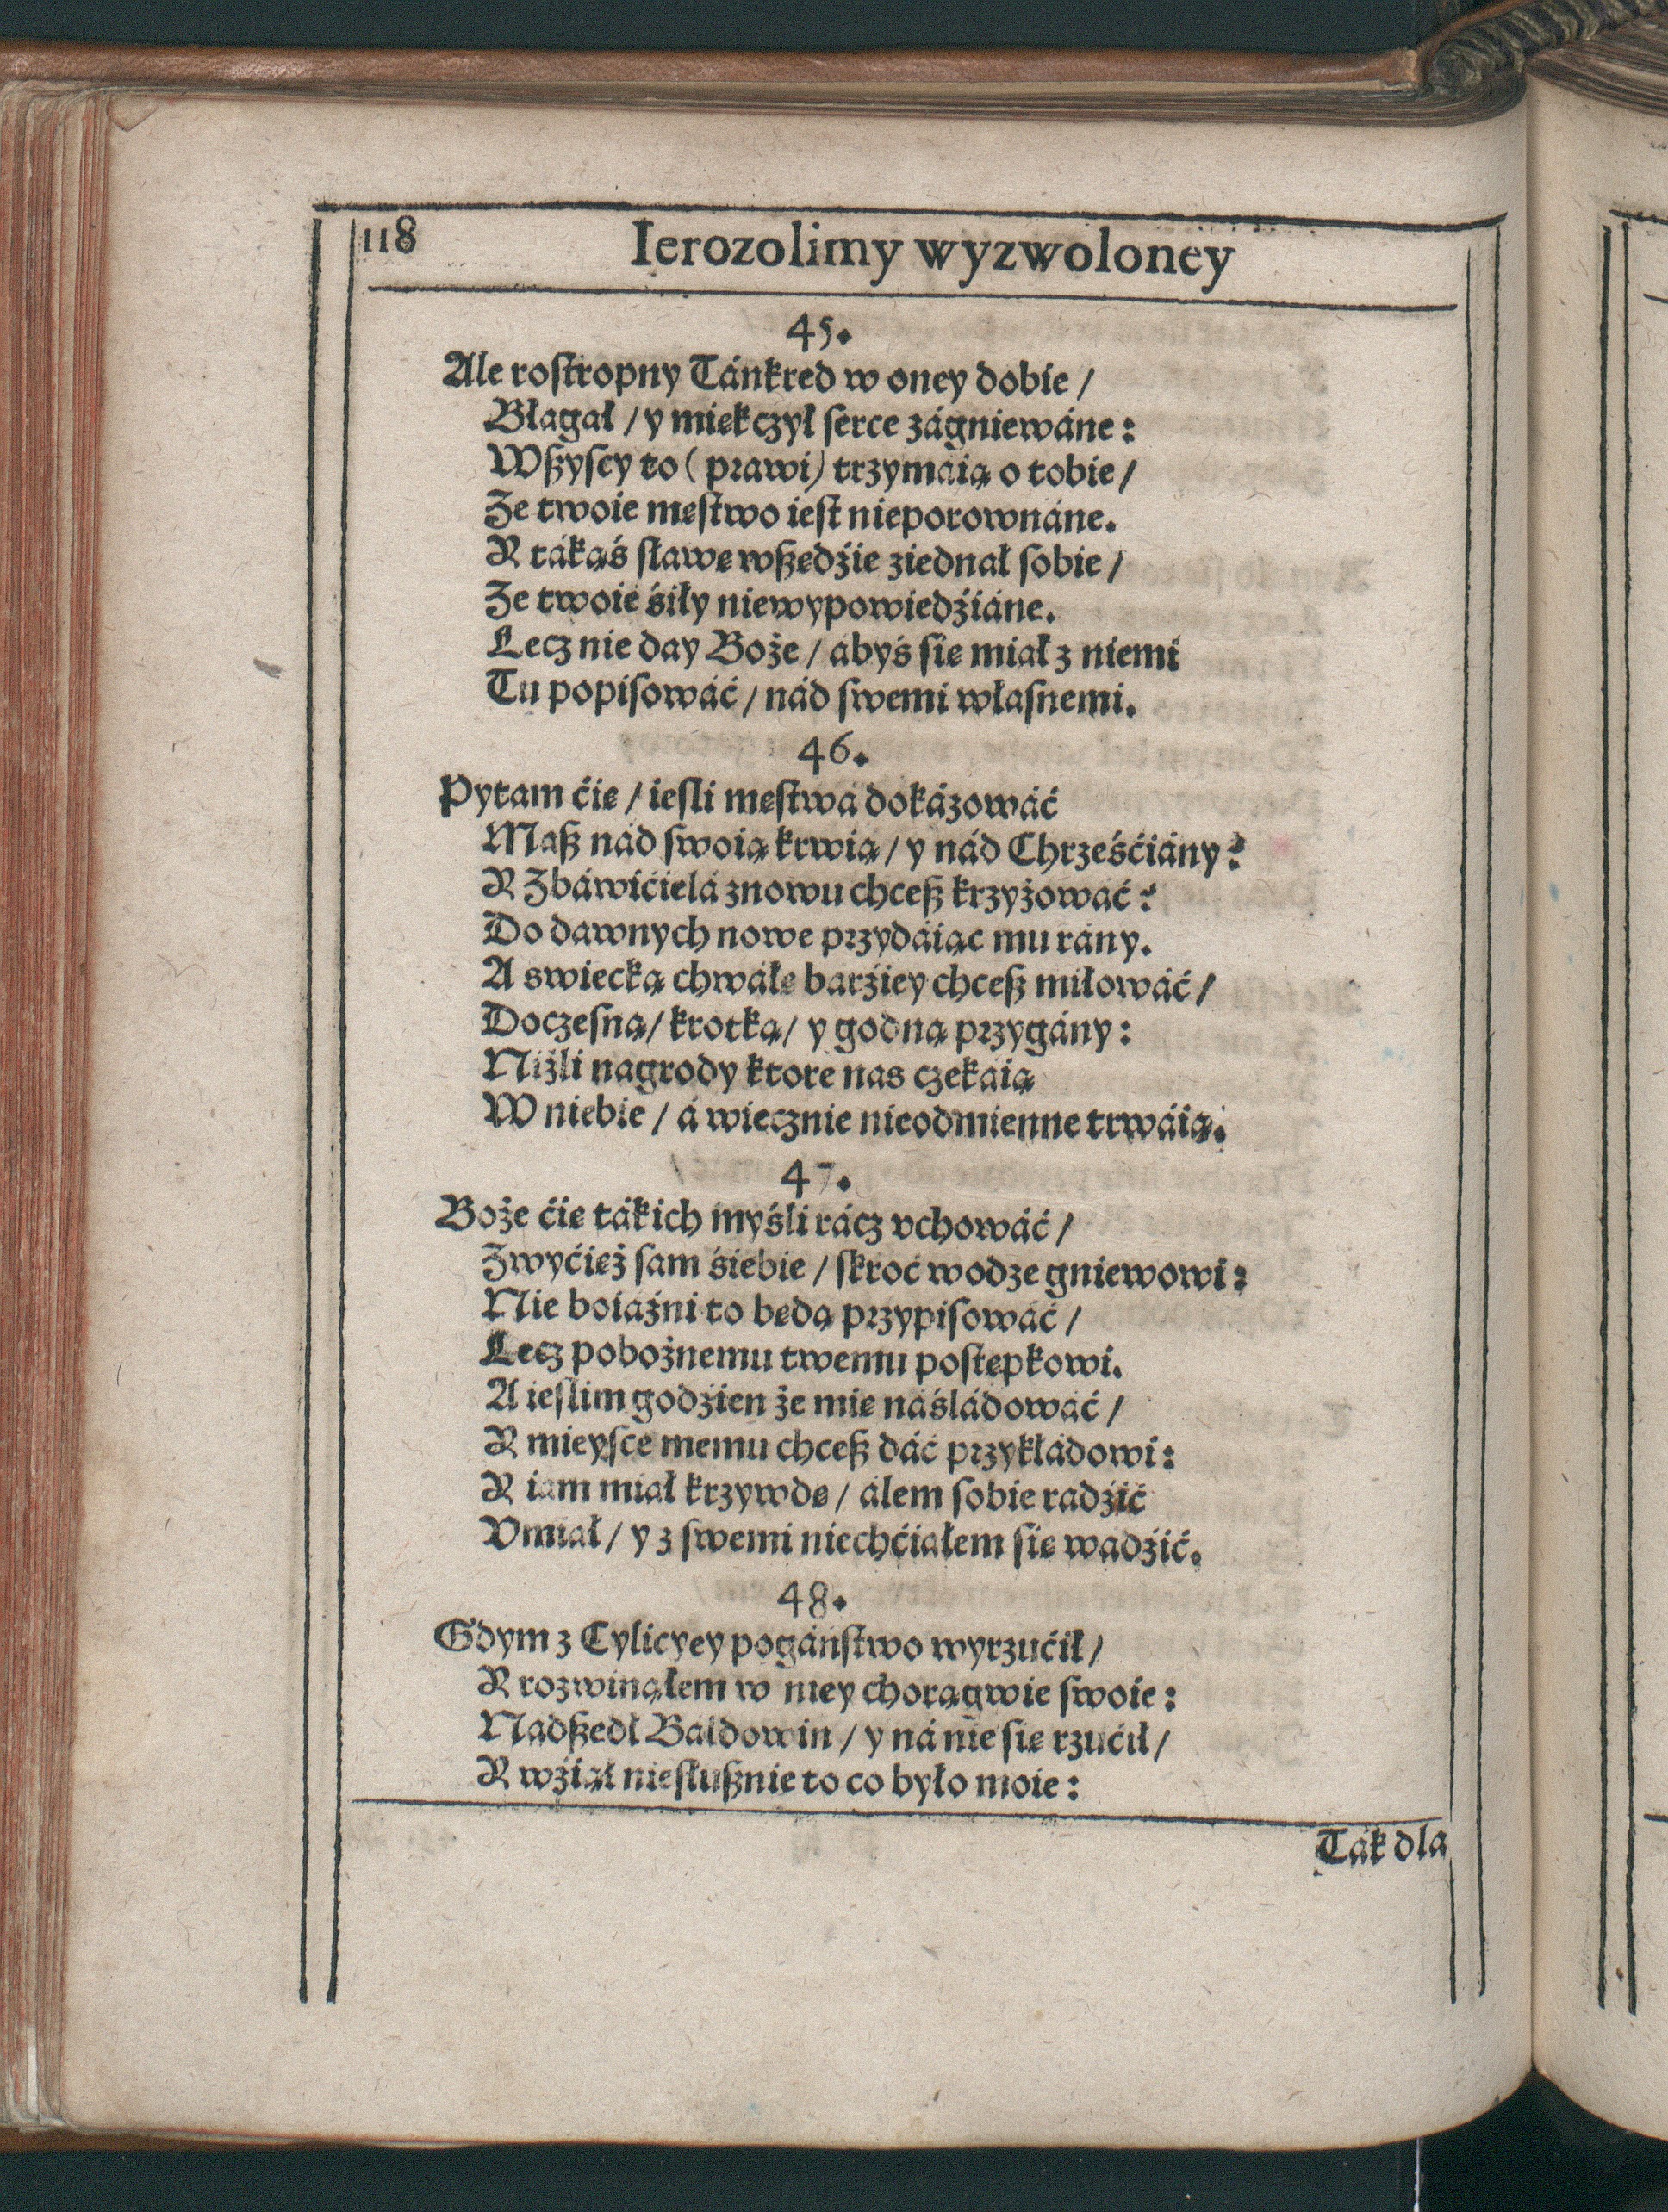 118
Ierozolimy wyzwoloney
45.
Ale roſtropny Tánkred w oney dobie /
Błagał / y miękczył ſerce zágniewáne:
Wßyſcy to ( prawi) trzymáią o tobie /
Ze twoie męſtwo ieſt nieporownáne.
Y tákąś ſławę wßędźie ziednał ſobie /
Ze twoie śiły niewypowiedźiáne.
Lecz nie day Boże / ábyś ſię miał z niemi
Tu popiſowáć / nád ſwemi właſnemi.
46.
Pytam ćię / ieſli męſtwá dokázowáć
Maß nád ſwoią krwią / y nád Chrześćiány?
Y Zbáwićielá znowu chceß krzyżowáć?
Do dawnych nowe przydáiąc mu rány.
A swiecką chwałę bárźiey chceß miłowáć /
Doczeſną / krotką / y godną przygány:
Niżli nagrody ktore nas czekáią
W niebie / á wiecznie nieodmienne trwáią.
47.
Boże ćię tákich myśli rácz vchowáć /
Zwyćięż ſam śiebie / ſkroć wodze gniewowi:
Nie boiaźni to będą przypiſowáć /
Lecz pobożnemu twemu poſtępkowi.
A ieſlim godźien że mię náśládowáć /
Y mieyſce memu chceß dáć przykłádowi:
Y iam miał krzywdę / álem ſobie radźić
Vmiał / y z ſwemi niechćiałem ſię wadźić.
48.
Gdym z Cylicyey pogáńſtwo wyrzućił /
Y rozwinąłem w niey chorągwie ſwoie:
Nadßedł Báldowin / y ná nię ſię rzućił /
Y wźiął nieſłußnie to co było moie:
Ták dla